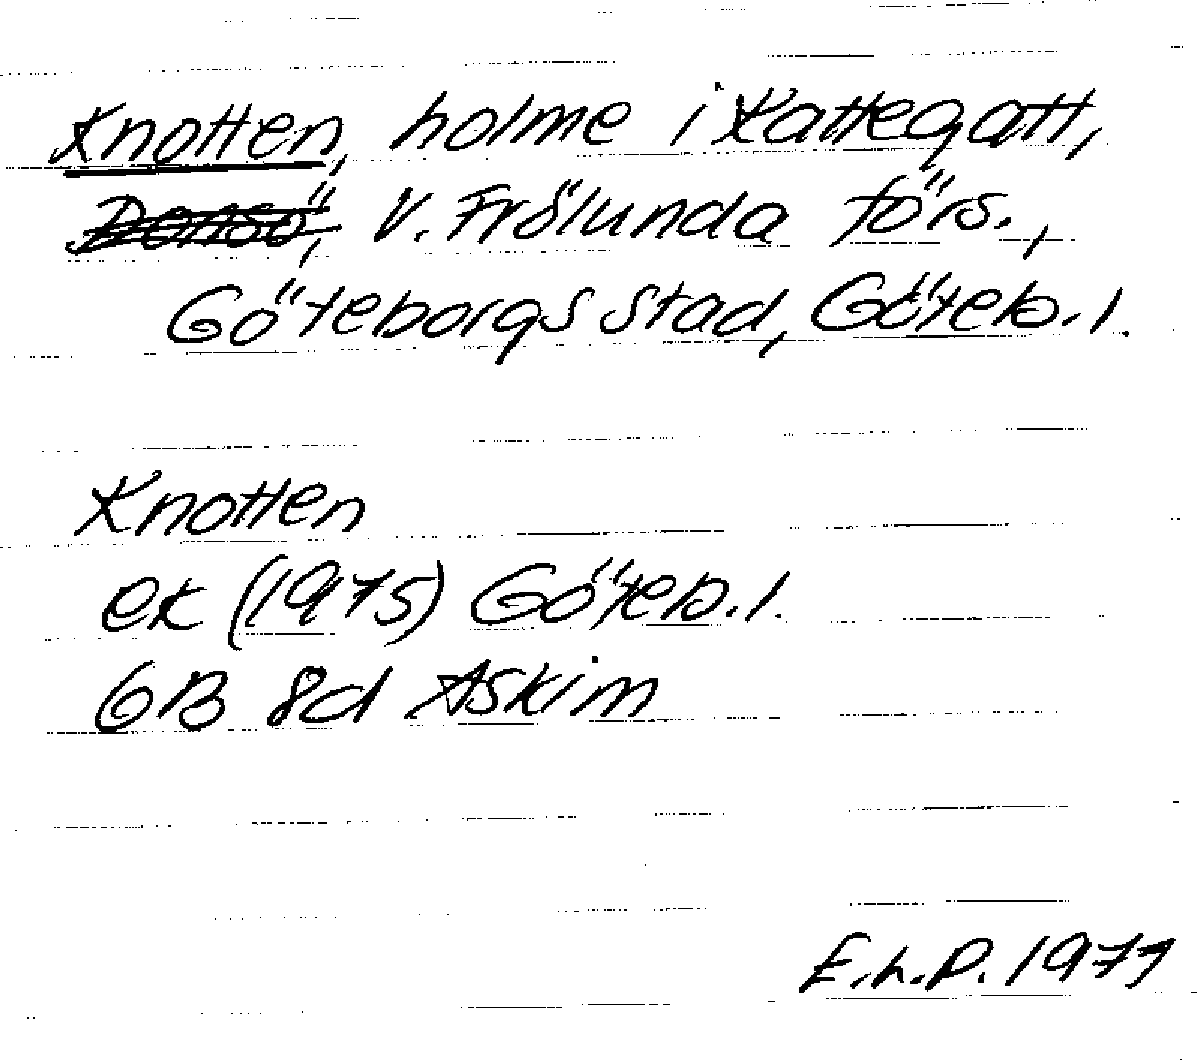 Knotten, holme i Kattegatt,
Donsö, V. Frölunda förs.,
Göteborgs stad, Göteb. l.
Knotten
ek (1975) Göteb. l.
6B 8d Askim
E.h.P. 1977